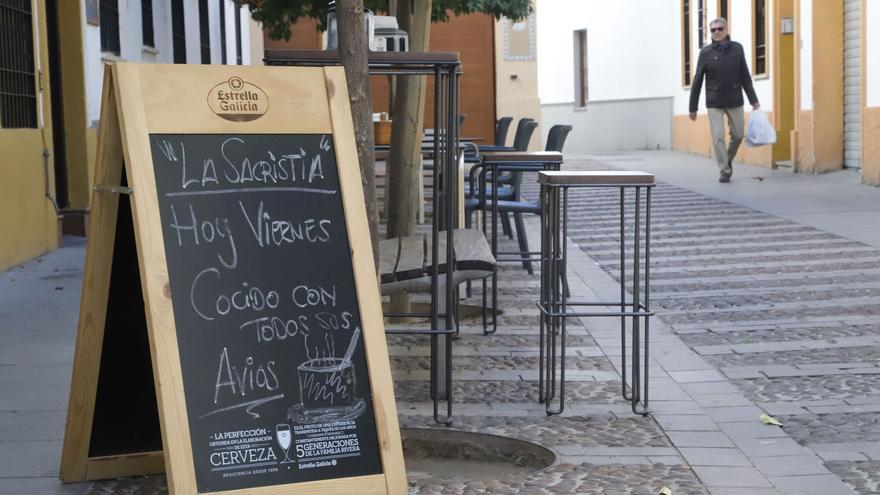 Estrella
Galicia
"LA SACRISTIA"
HOY VIERNES
COCIDO CON
TODOS SUS
AVIOS
LA PERFECCIÓN
OBTENIDA EN LA ELABORACIÓN
DE ESTA
CERVEZA
RESISTENCIA DESDE 1906
ES EL FRUTO DE UNA EXPERIENCIA
TRANSMITIDA A TRAVÉS DE LOS AÑOS
CONSTANTEMENTE MEJORADA POR
5 GENERACIONES
DE LA FAMILIA RIVERA
Estrella Galicia